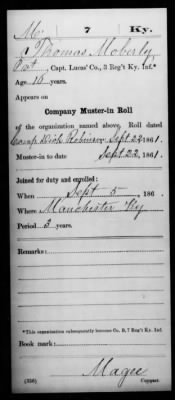 M | 7 | Ky.
Thomas Moberly
Pvt, Capt. Lucas' Co., 3 Reg't Ky. Inf.*
Age 18 years.
Appears on
Company Muster-in Roll
of the organization named above. Roll dated
Camp Dick Robinson Sept 22, 1861.
Muster-in to date Sept 22, 1861.
Joined for duty and enrolled:
When Sept 5, 186 .
Where Manchester Ky
Period 3 years.
Remarks:
*This organization subsequently became Co. B, 7 Reg't Ky. Inf.
Book mark:
Magee
(356) Copyist.